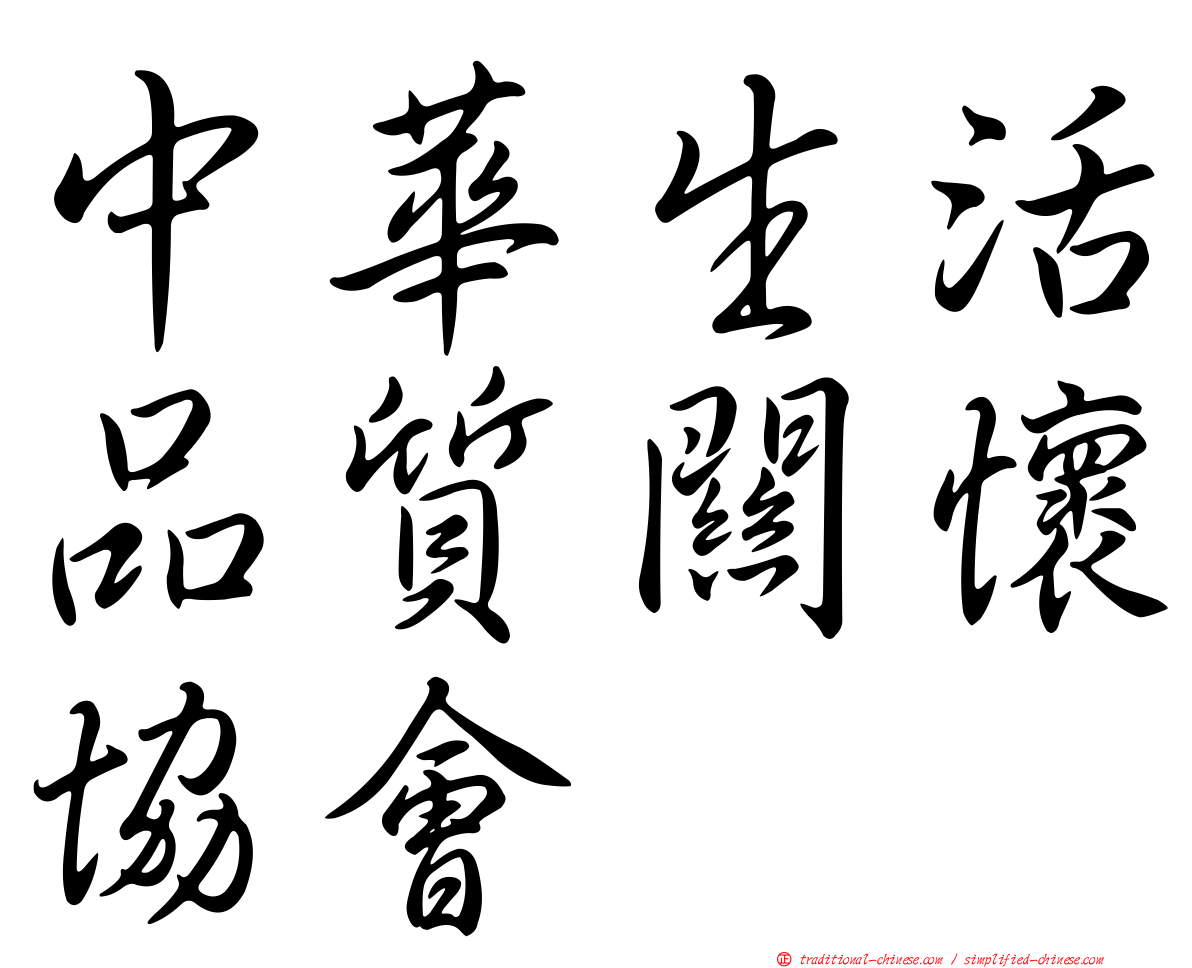 中華生活
品質關懷
協會
㊣ traditional-chinese.com / simplified-chinese.com